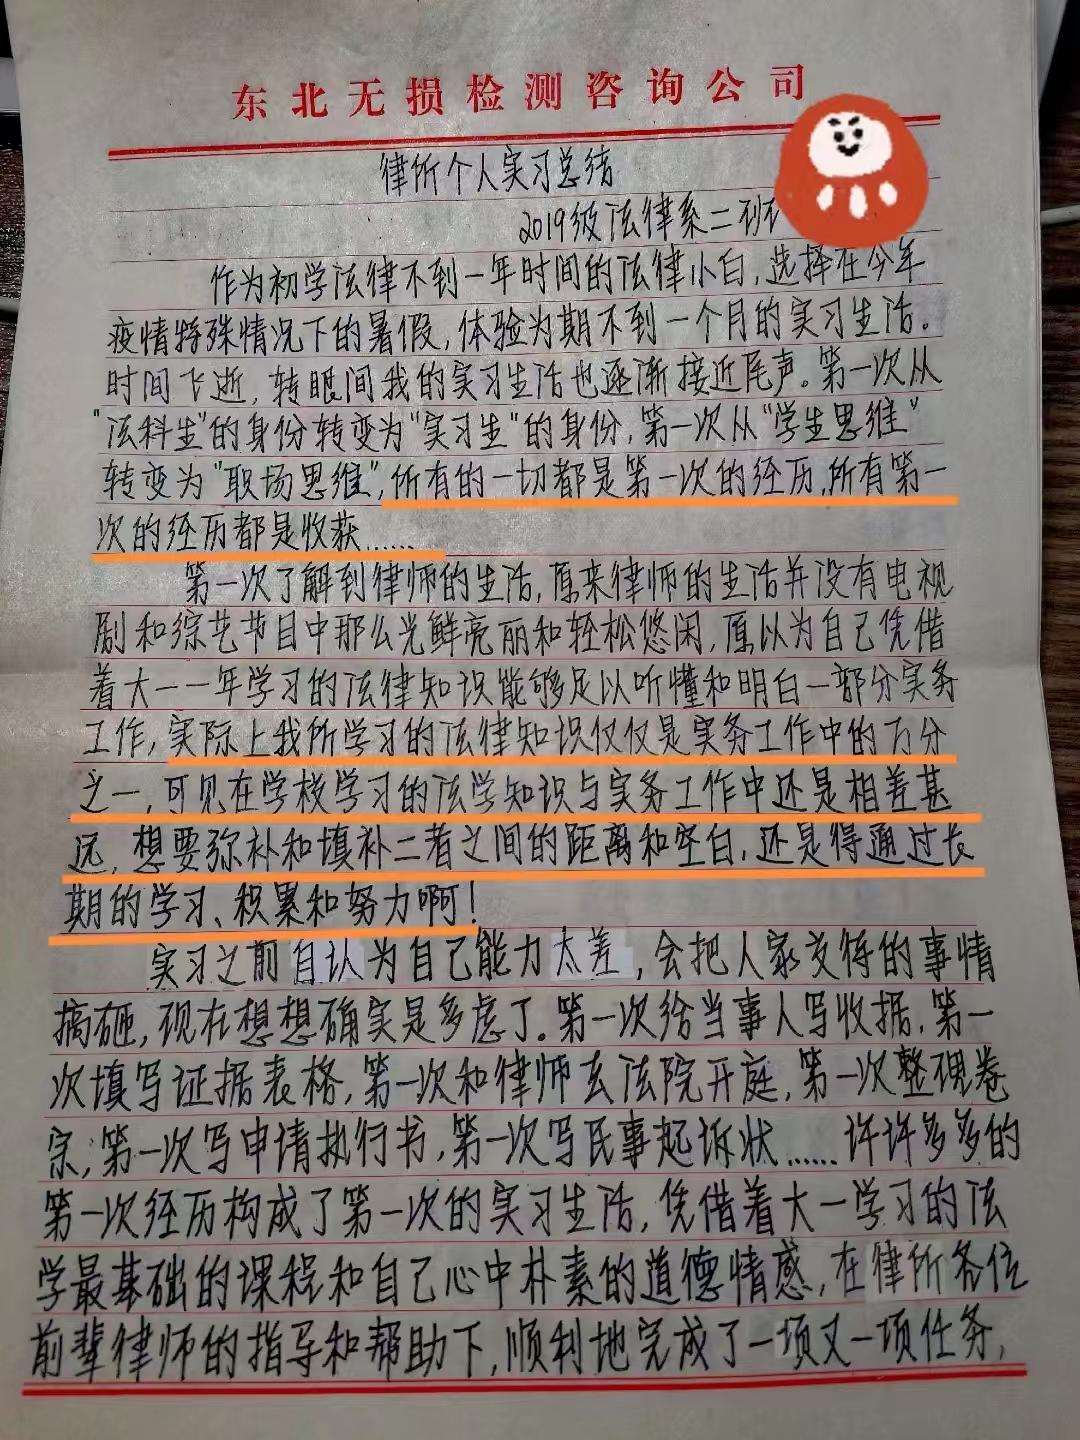 东北无损检测咨询公司
律所个人实习总结
2019级法律系二班
作为初学法律不到一年时间的法律小白，选择在今年
疫情特殊情况下的暑假，体验为期不到一个月的实习生活。
时间飞逝，转眼间我的实习生活也逐渐接近尾声。第一次从
"法科生"的身份转变为"实习生"的身份，第一次从"学生思维"
转变为"职场思维"，所有的一切都是第一次的经历，所有第一
次的经历都是收获......
第一次了解到律师的生活，原来律师的生活并没有电视
剧和综艺节目中那么光鲜亮丽和轻松悠闲，原以为自己凭借
着大一一年学习的法律知识能够足以听懂和明白一部分实务
工作，实际上我所学习的法律知识仅仅是实务工作中的万分
之一，可见在学校学习的法学知识与实务工作中还是相差甚
远，想要弥补和填补二者之间的距离和空白，还是得通过长
期的学习、积累和努力啊！
实习之前自认为自己能力太差，会把人家交待的事情
搞砸，现在想想确实是多虑了。第一次给当事人写收据，第一
次填写证据表格，第一次和律师去法院开庭，第一次整理卷
宗，第一次写申请执行书，第一次写民事起诉状......许许多多的
第一次经历构成了第一次的实习生活，凭借着大一学习的法
学最基础的课程和自己心中朴素的道德情感，在律所各位
前辈律师的指导和帮助下，顺利地完成了一项又一项任务，